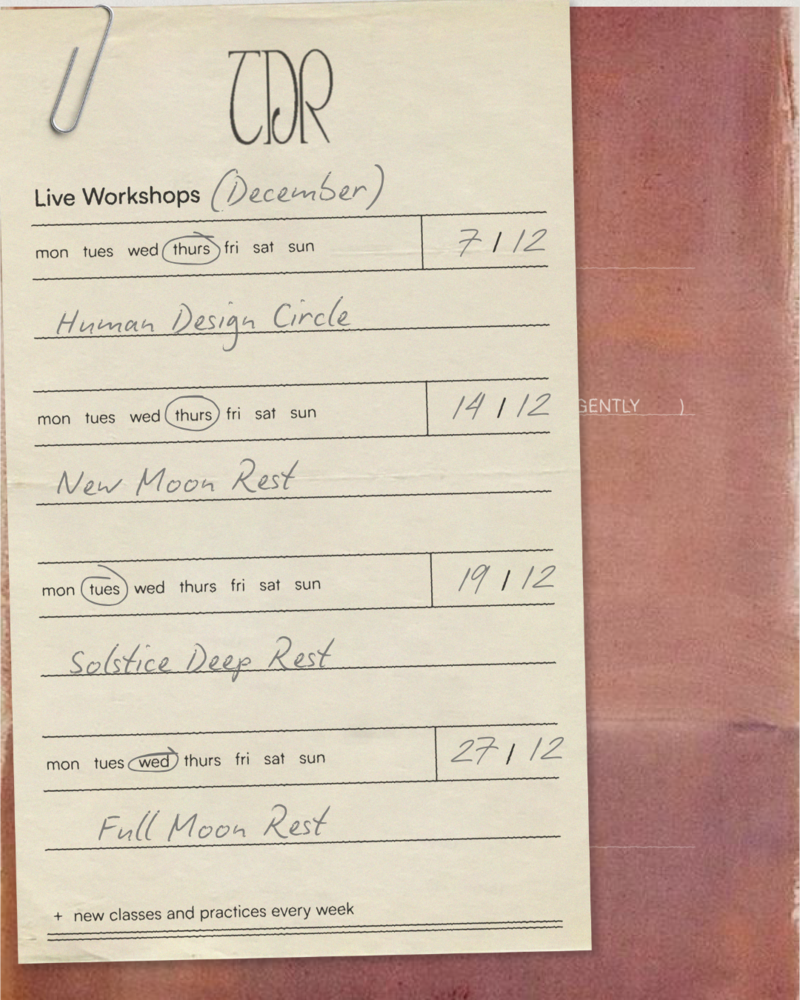 TDR
Live Workshops (December)
mon tues wed thurs fri sat sun 7 / 12
Human Design Circle
mon tues wed thurs fri sat sun 14 / 12
GENTLY )
New Moon Rest
mon tues wed thurs fri sat sun 19 / 12
Solstice Deep Rest
mon tues wed thurs fri sat sun 27 / 12
Full Moon Rest
+ new classes and practices every week